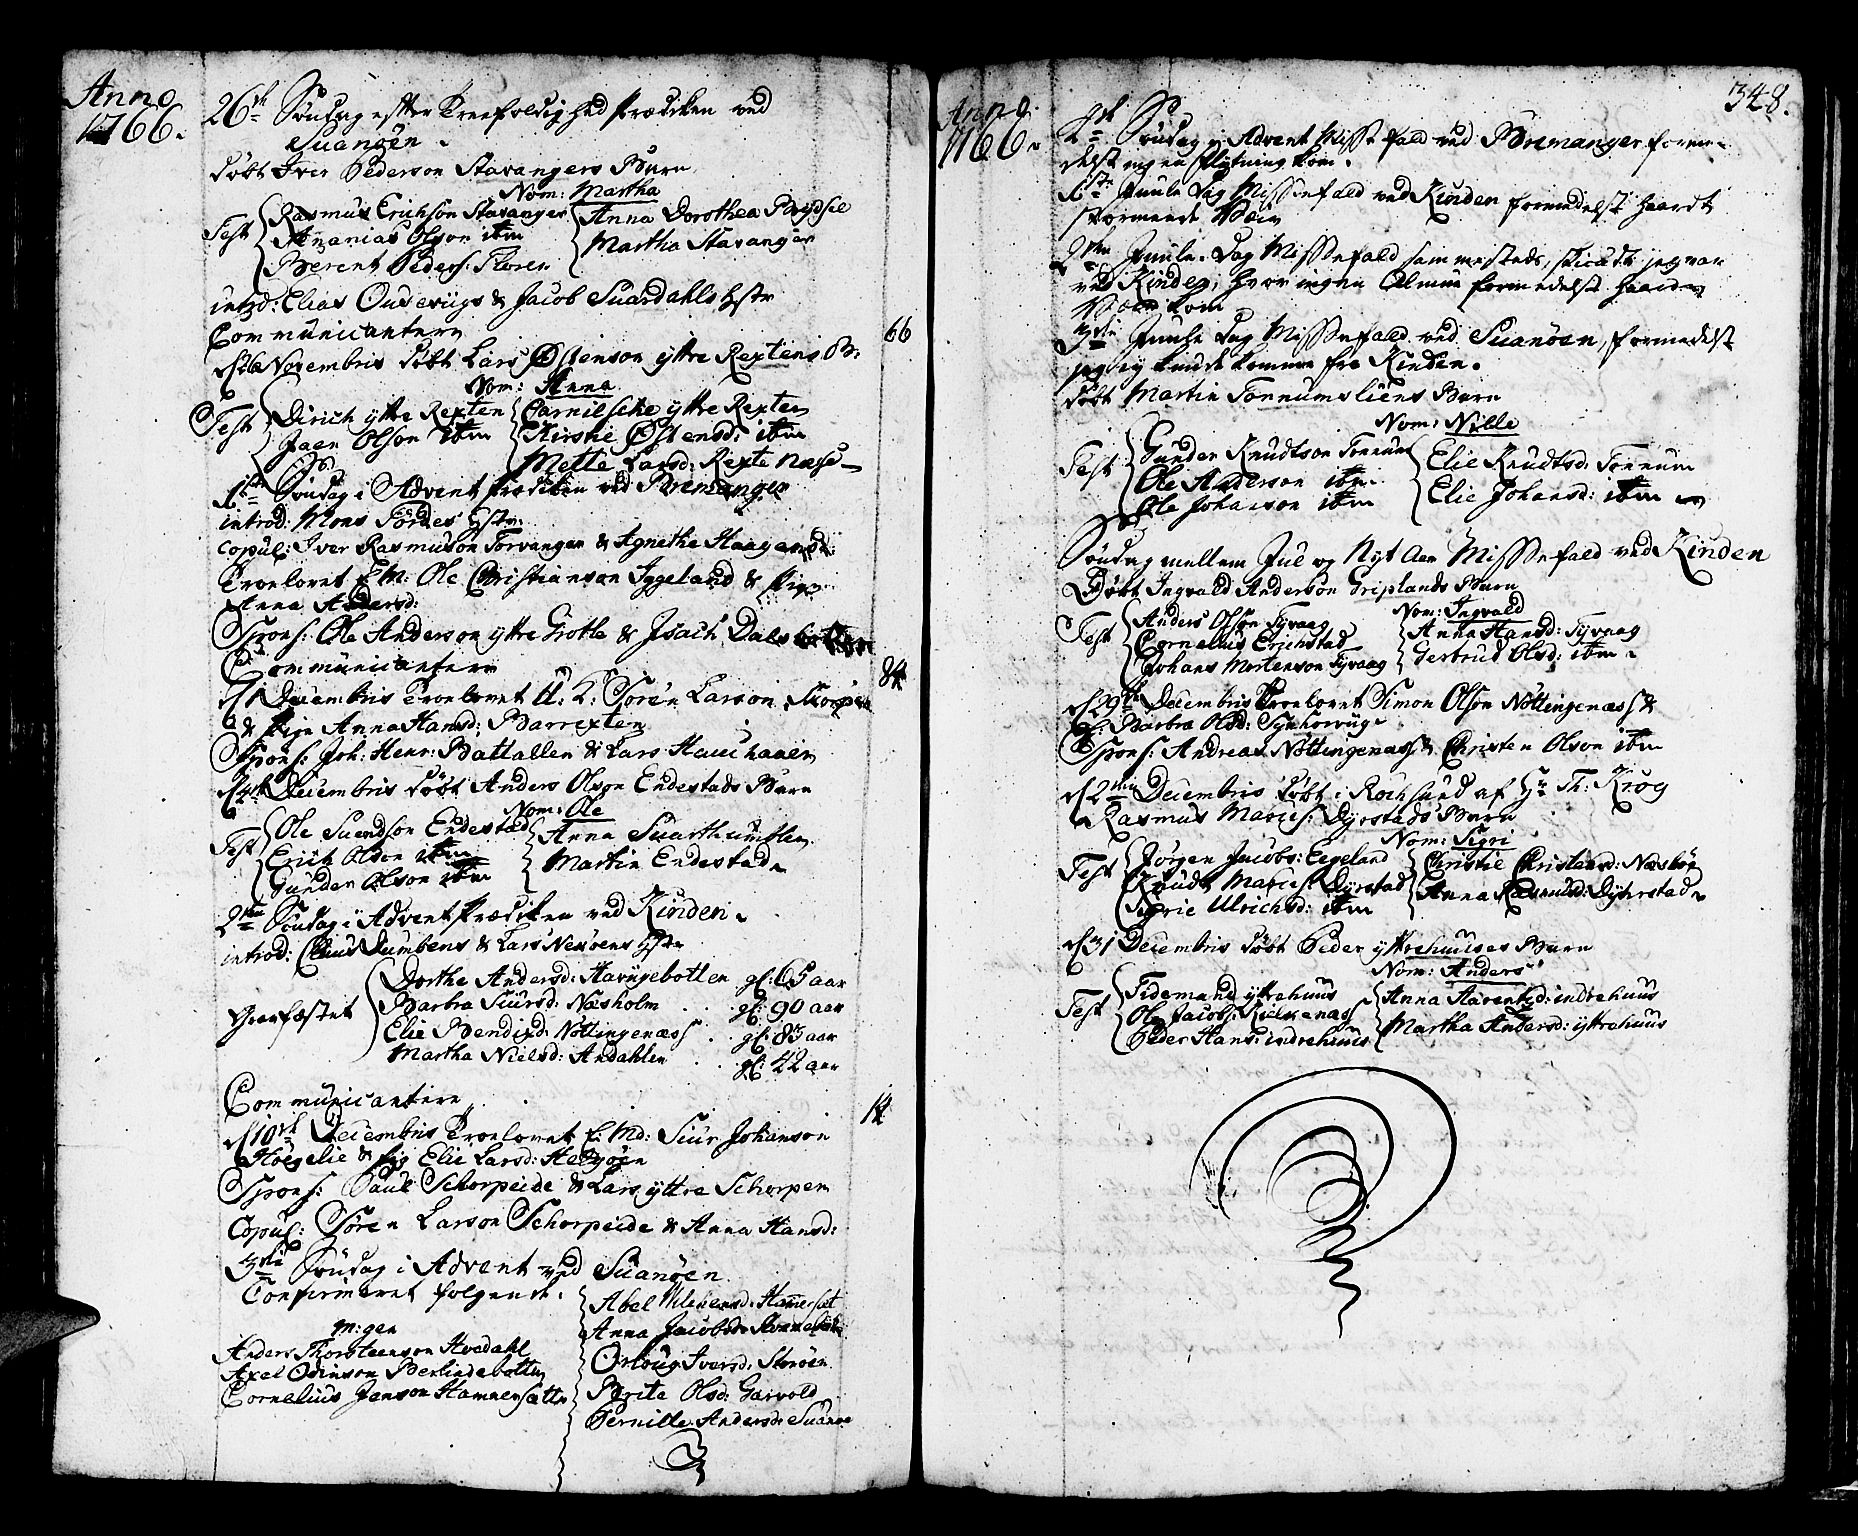 Anno
1766.
26de Søndag efter Treefoldighed Prædiken ved
Suanøen.
døbt Iver Pederson Stavangers Barn
Nom: Martha
Test Rasmus Erichson Stavanger
Ananias Olson ibm
Berent Peders: Floren
Anna Dorothea Brydsel
Martha Stavanger
introd: Elias Ousevugs & Jacob Suardahls Hstr
Communicantere 66
d: Novembris døbt Lars Østenson yttre Rextens B:
Nom: Anna
Test Dirich yttre Rexten
Jaen Olson ibm
Carnilske yttre Rexten
Kirstie Østensd: ibm
Mette Larsd: Rexte Næse
1ste Søndag i Advent Prædiken ved Bremanger
introd: Mons Førdes Hstr:
copul: Iver Rasmuson Torvanger & Agnethe Haagensd:
Troelovet E.M: Ole Christianson Iggeland & Pige
Anna Andersd:
Spons: Ole Anderson yttre Grotle & Isach Dalsbotten
Communicantere 84
d 1 Decembris Troelovet U.K: Søren Larson Skorpen
& Pige Anna Hansd: Barrexten
Spons: Joh: Henr: Battallen & Lars Hauchanen
d 4de Decembris døbt Anders Olson Endestads Barn
Nom: Ole
Test Ole Suendson Endestad
Erich Olson ibm
Gunder Olson ibm
Anna Suarthumblen
Martin Endestad
2den Søndag i Advent Prædiken ved Kinden.
introd: Claus Dumbens & Lars Nesøens Hstr
Jordfæstet Dorthe Andersd: Havygebotten gl: 65 aar
Barbra Siursd: Næsholm gl: 90 aar
Elie Bendixd: Nøttingenæss gl: 83 aar
Martha Nielsd: Andahlen gl: 42 aar
Communicantere 14
d 10de Decembris Troelovet E: Md: Siur Johanson
Hoegelie & Pig Elie Larsd: Hellyøen
Spons: Paul Schorpeide & Lars yttre Schorpen
Copul: Søren Larson Schorpeide & Anna Hansd:
3die Søndag i Advent ved Suanøen
Confirmeret følgende.
Anders Thorsteenson Hovdahl
Axel Odinson Berlindebotten
Cornelius Janson Hammersætte
Abel Hammersæt
Anna Jacobsd:
Orloug Iversd: Storøen
Brite Olsd: Garvold
Pernille Andersd: Suanøe
348.
Anno
1766.
4de Søndag i Advent Missefald ved Bremanger forme-
delst ingen Flytning kom.
1ste Juule Dag Missefald ved Kinden formedelst haardt
stormende Væir
2den Juule-Dag Missefald sammesteds, skiøndt jeg var
ved Kinden, hvor ingen Almue formedelst haarde
Væir kom
3die Juule Dag Missefald ved Suanøen, formedelst
jeg ey kunde komme fra Kinden.
døbt Martin Tonnumsliens Barn
Nom: Nille
Test Gunder Knudtson Tonnum
Ole Anderson ibm
Ole Johanson ibm
Elie Knudtsd: Tonnum
Elie Johansd: ibm
Søndag mellem Jul og Nyt Aar Missefald ved Kinden
Døbt Ingvald Anderson Griplands Barn
Nom: Ingvald
Test Anders Olson Tyvaag
Cornelius Erichstad
Johans Mortenson Tyvaag
Anna Hansd: Tyvaag
Gertrud Olsd: ibm.
d 29de Decembris Troelovet Simon Olson Nøttingenæss &
Barbra Olsd:
Spons: Andreas Nøttingenæss & Christen Olson ibm
d 2 Decembris døbt i Rochsund af Hr Th: Krog
Rasmus Maries: Dyrstads Barn
Nom: Sigri
Test Jørgen Jacobs: Eegeland
Knudt Maries: Dyrstad
Sigrie Ulrichsd: ibm
Christie Christansd: Næsbøg
Anna Rasmusd: Dyrstad
d 31 Decembris døbt Peder yttrehuuses Barn
Nom: Anders
Test Tidemand yttrehuus
Ole Jacobs: Kielkenæss
Peder Hans: indrehuus
Anna Aarentsd: indrehuus
Martha Andersd: yttrehuus